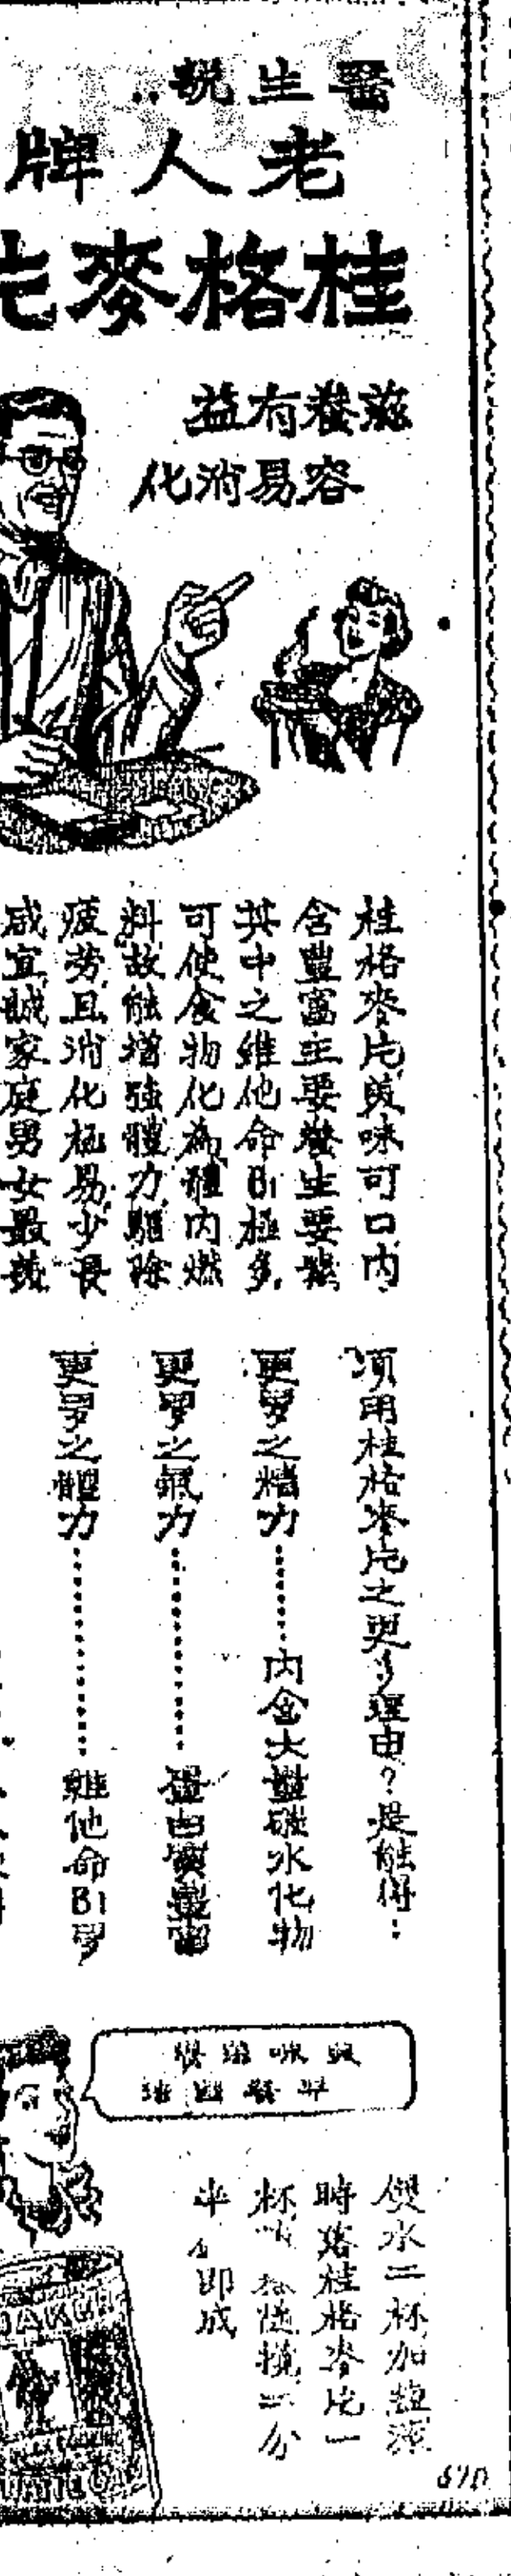 醫生說..
老人牌
桂格麥片
滋養有益
容易消化
桂格麥片美味可口內
含豐富主要養生要素
其中之維他命B1極多
可使食物化為體內燃
料故能增強體力驅除
疲勞且消化極易少長
咸宜誠家庭男女最
須用桂格麥片之更多理由?是能得:
更多之精力………內含大量碳水化物
更多之氣力………蛋白質最富
更多之體力………維他命B1多
煲水二杯加鹽滾
時落桂格麥片一
杯 攪二分
半 即成
67D